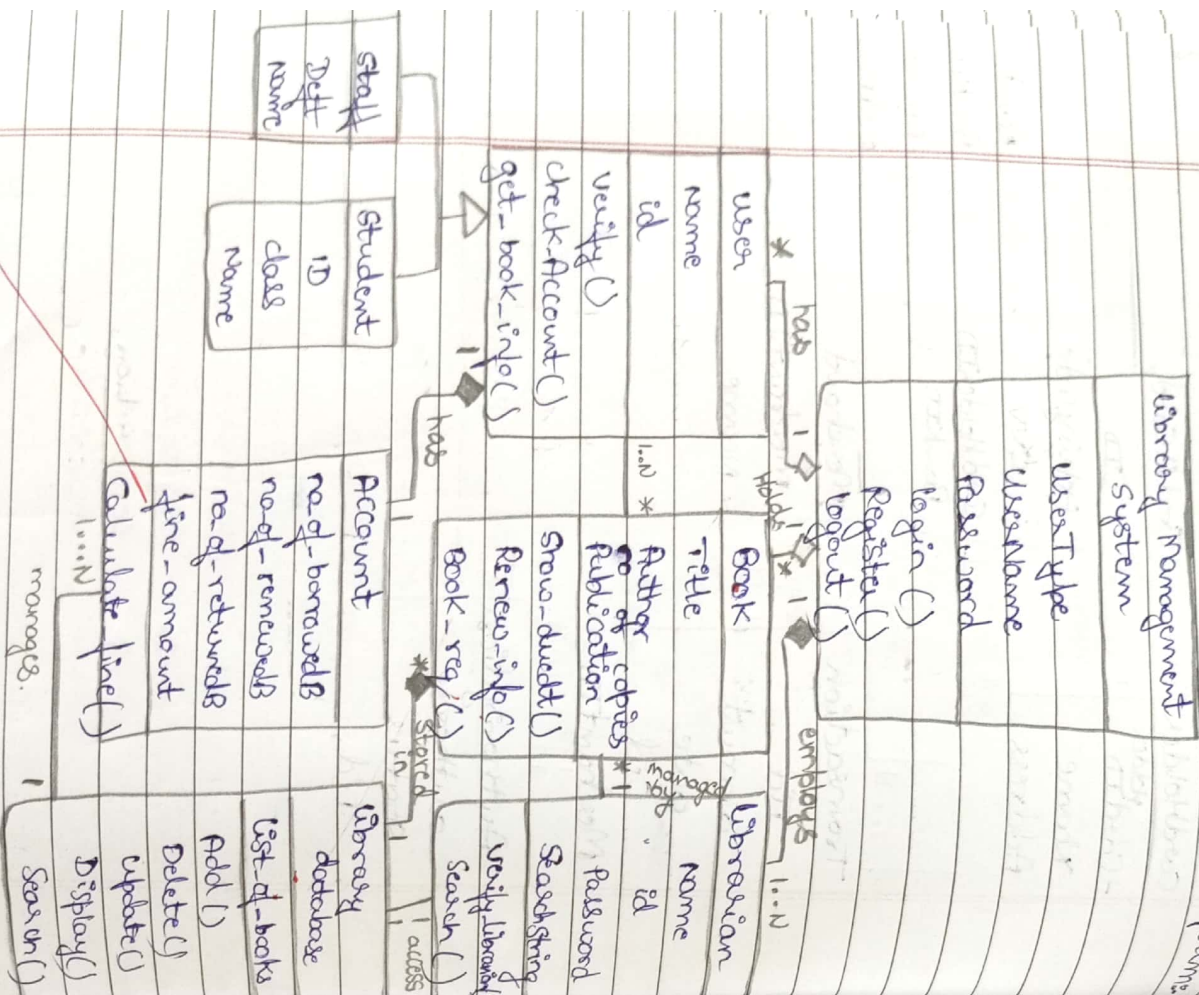 Library Management
System
UserType
UserName
Password
Login ()
Register()
Logout ()
*
has
1
Holds
1
*
1
employs
1..N
User
Name
id
Verify ()
check_Account()
get_book_info()
1..N *
Book
Title
Author
no of copies
Publication
Show_duedt()
Renew_info()
Book_req()
*
1
Librarian
Name
" id
Password
SearchString
Verify_librarian()
Search ()
1
has
*
Stored
in
1
access
Staff
Dett
Name
Student
ID
class
Name
Account
no_of_borrowedB
no_of_renewedB
no_of_returnedB
fine_amount
Calculate_fine()
1....N
manages.
1
Library
database
List_of_books
Add ()
Delete()
Update()
Display()
Search()